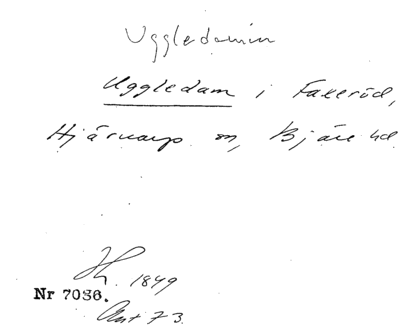 Uggledamm
Uggledam i Faleröd,
Hjärnarp sn, Bjäre hd
Hh. 1849
Nr 7036.
Ant 73.